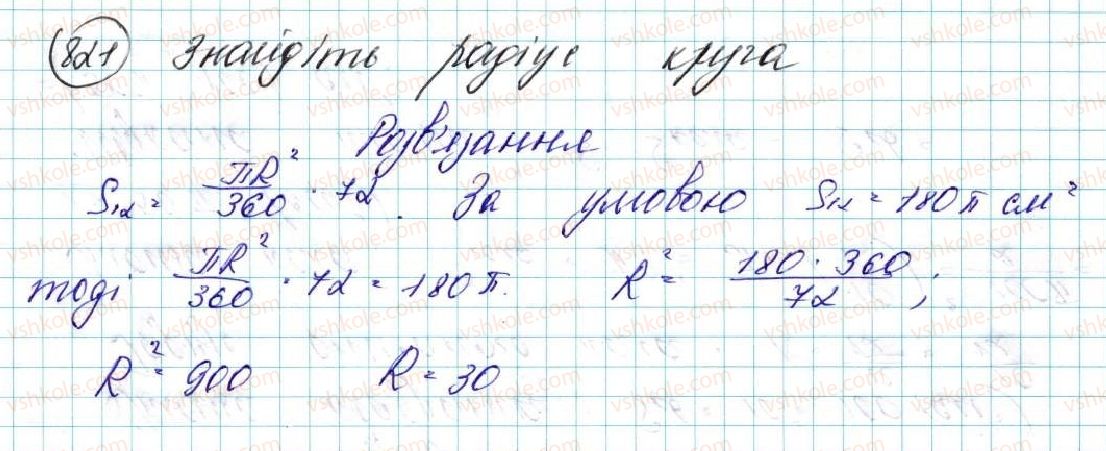 821 Знайдіть радіус круга
Розв'язання
S₁₂ = πR²/360 · 72. За умовою S₁₂ = 180π см²
тоді πR²/360 · 72 = 180π. R² = 180 · 360/72;
R² = 900 R = 30